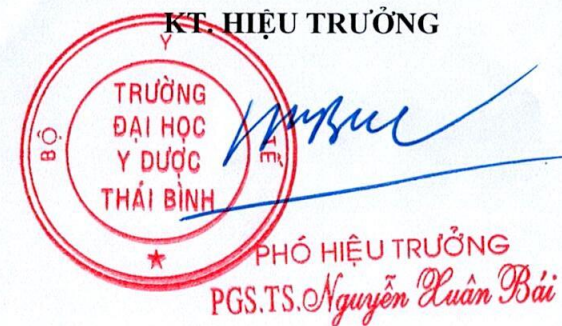 KT. HIỆU TRƯỞNG
BỘ Y TẾ
TRƯỜNG
ĐẠI HỌC
Y DƯỢC
THÁI BÌNH
PHÓ HIỆU TRƯỞNG
PGS.TS. Nguyễn Xuân Bái